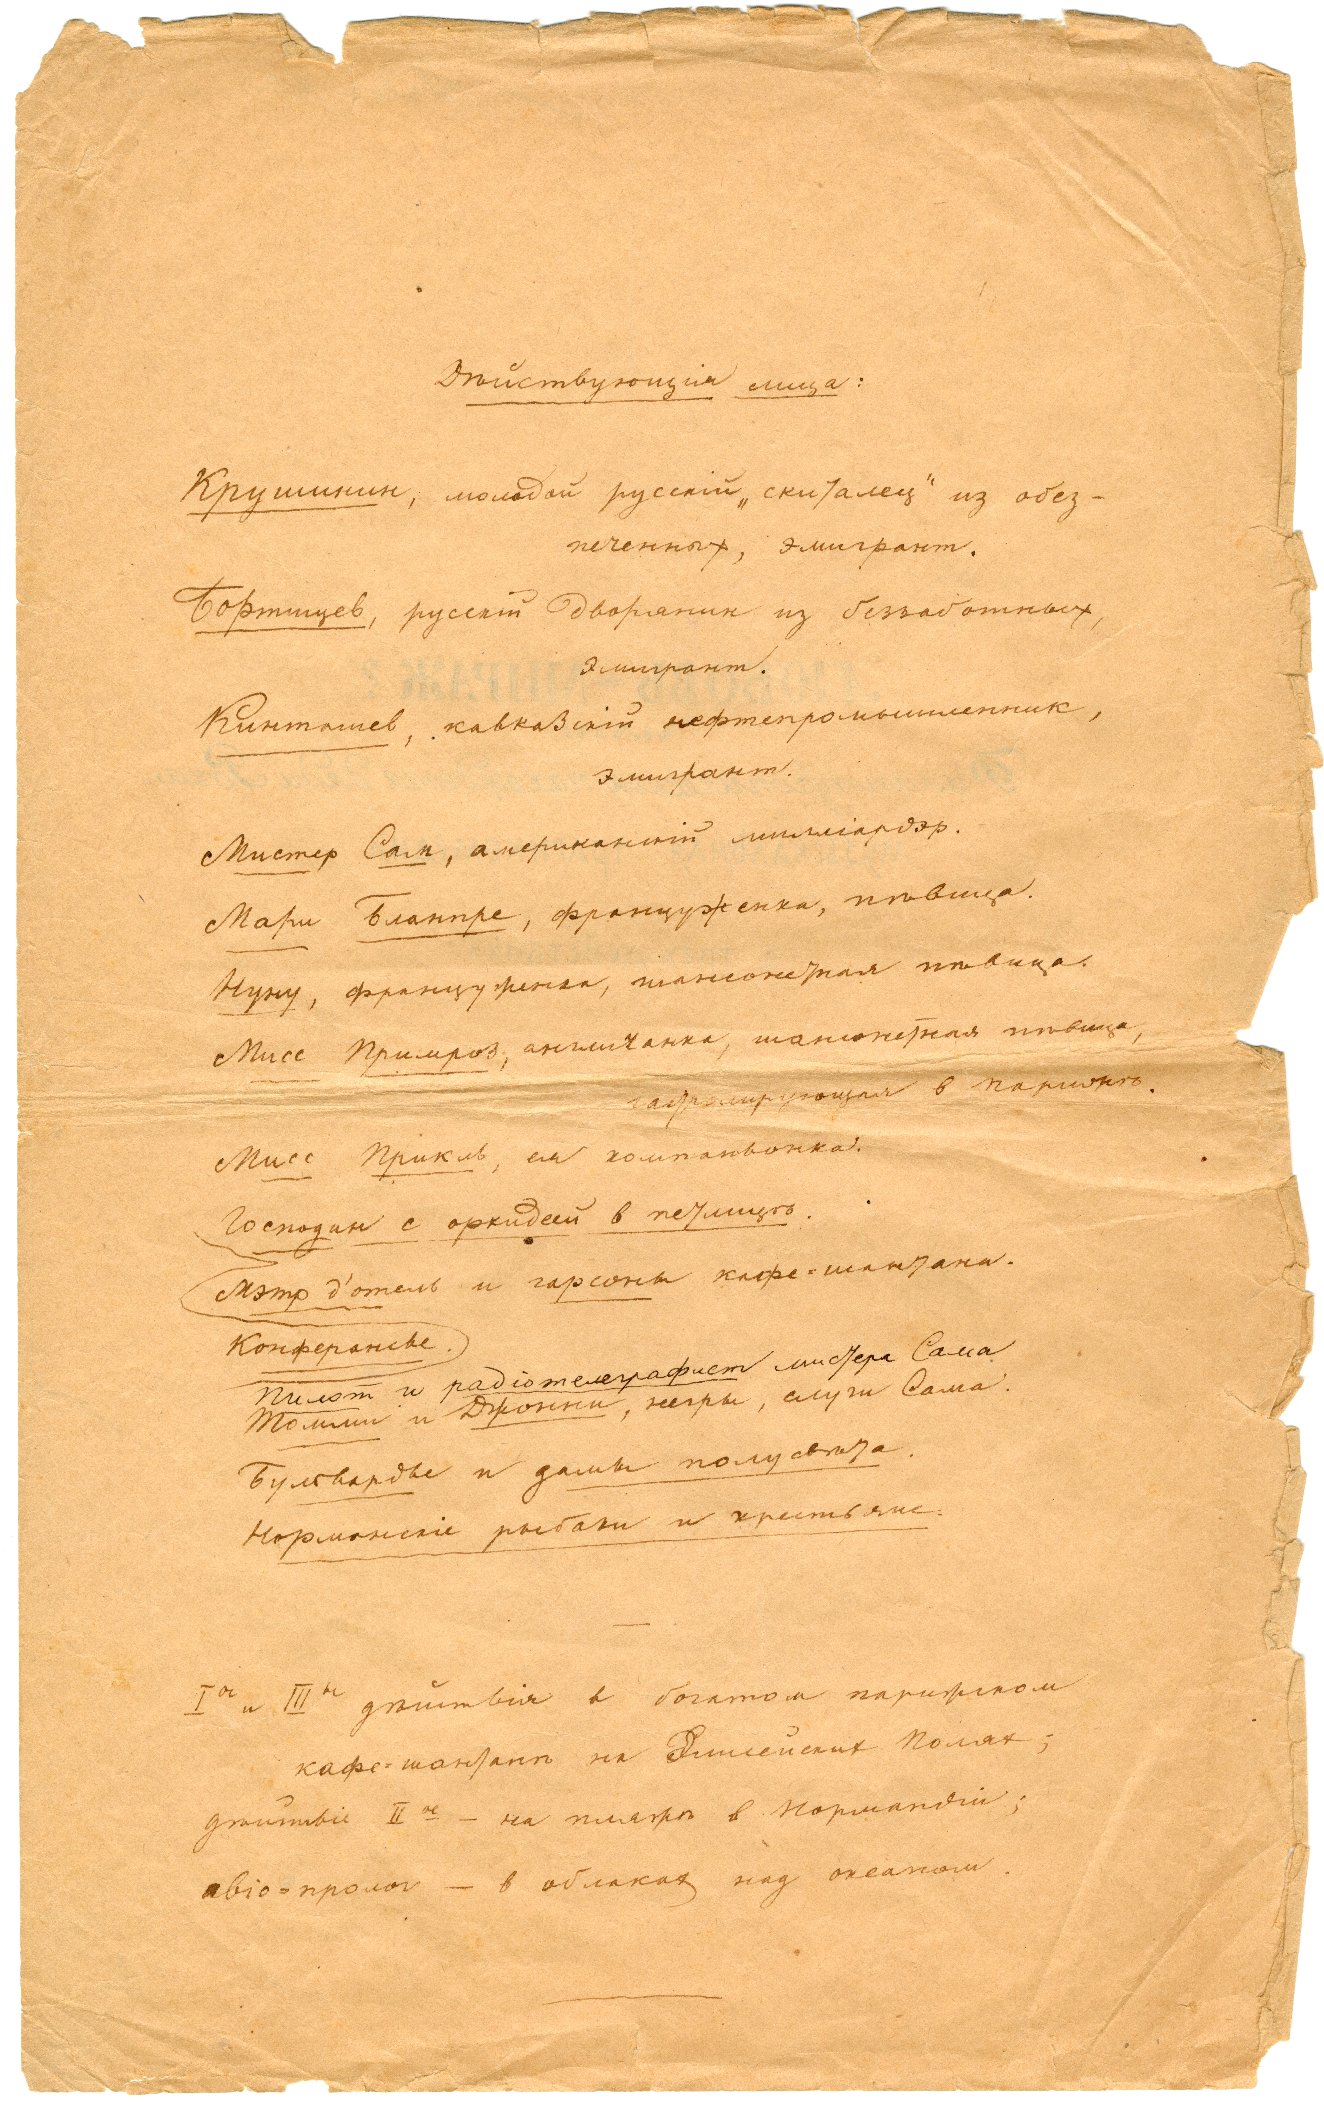 Дѣйствующія лица:
Крушинин, молодой русскій „скиталец“ из обез-
печенных, эмигрант.
Бортищев, русскій дворянин из беззаботных,
эмигрант.
Кинташев, кавказскій нефтепромышленник,
эмигрант.
Мистер Сам, американскій милліардэр.
Мари Бланпре, француженка, пѣвица.
Нуну, француженка, шансонетная пѣвица.
Мисс Примроз, англичанка, шансонетная пѣвица,
гастролирующая в Парижѣ.
Мисс Прикль, ея компаньонка.
Господин с орхидеей в петлицѣ.
Мэтр д'отель и гарсоны кафе=шантана.
Конферансье.
Пилот и радіотелеграфист мистера Сама
Томми и Джонни, негры, слуги Сама.
Бульвардье и дамы полусвѣта.
Нормандскіе рыбаки и крестьяне.
I ое и III ье дѣйствія в богатом парижском
кафе=шантанѣ на Элисейских Полях;
дѣйствіе II ое – на пляжѣ в Нормандіи;
авіо=пролог – в облаках над океаном.